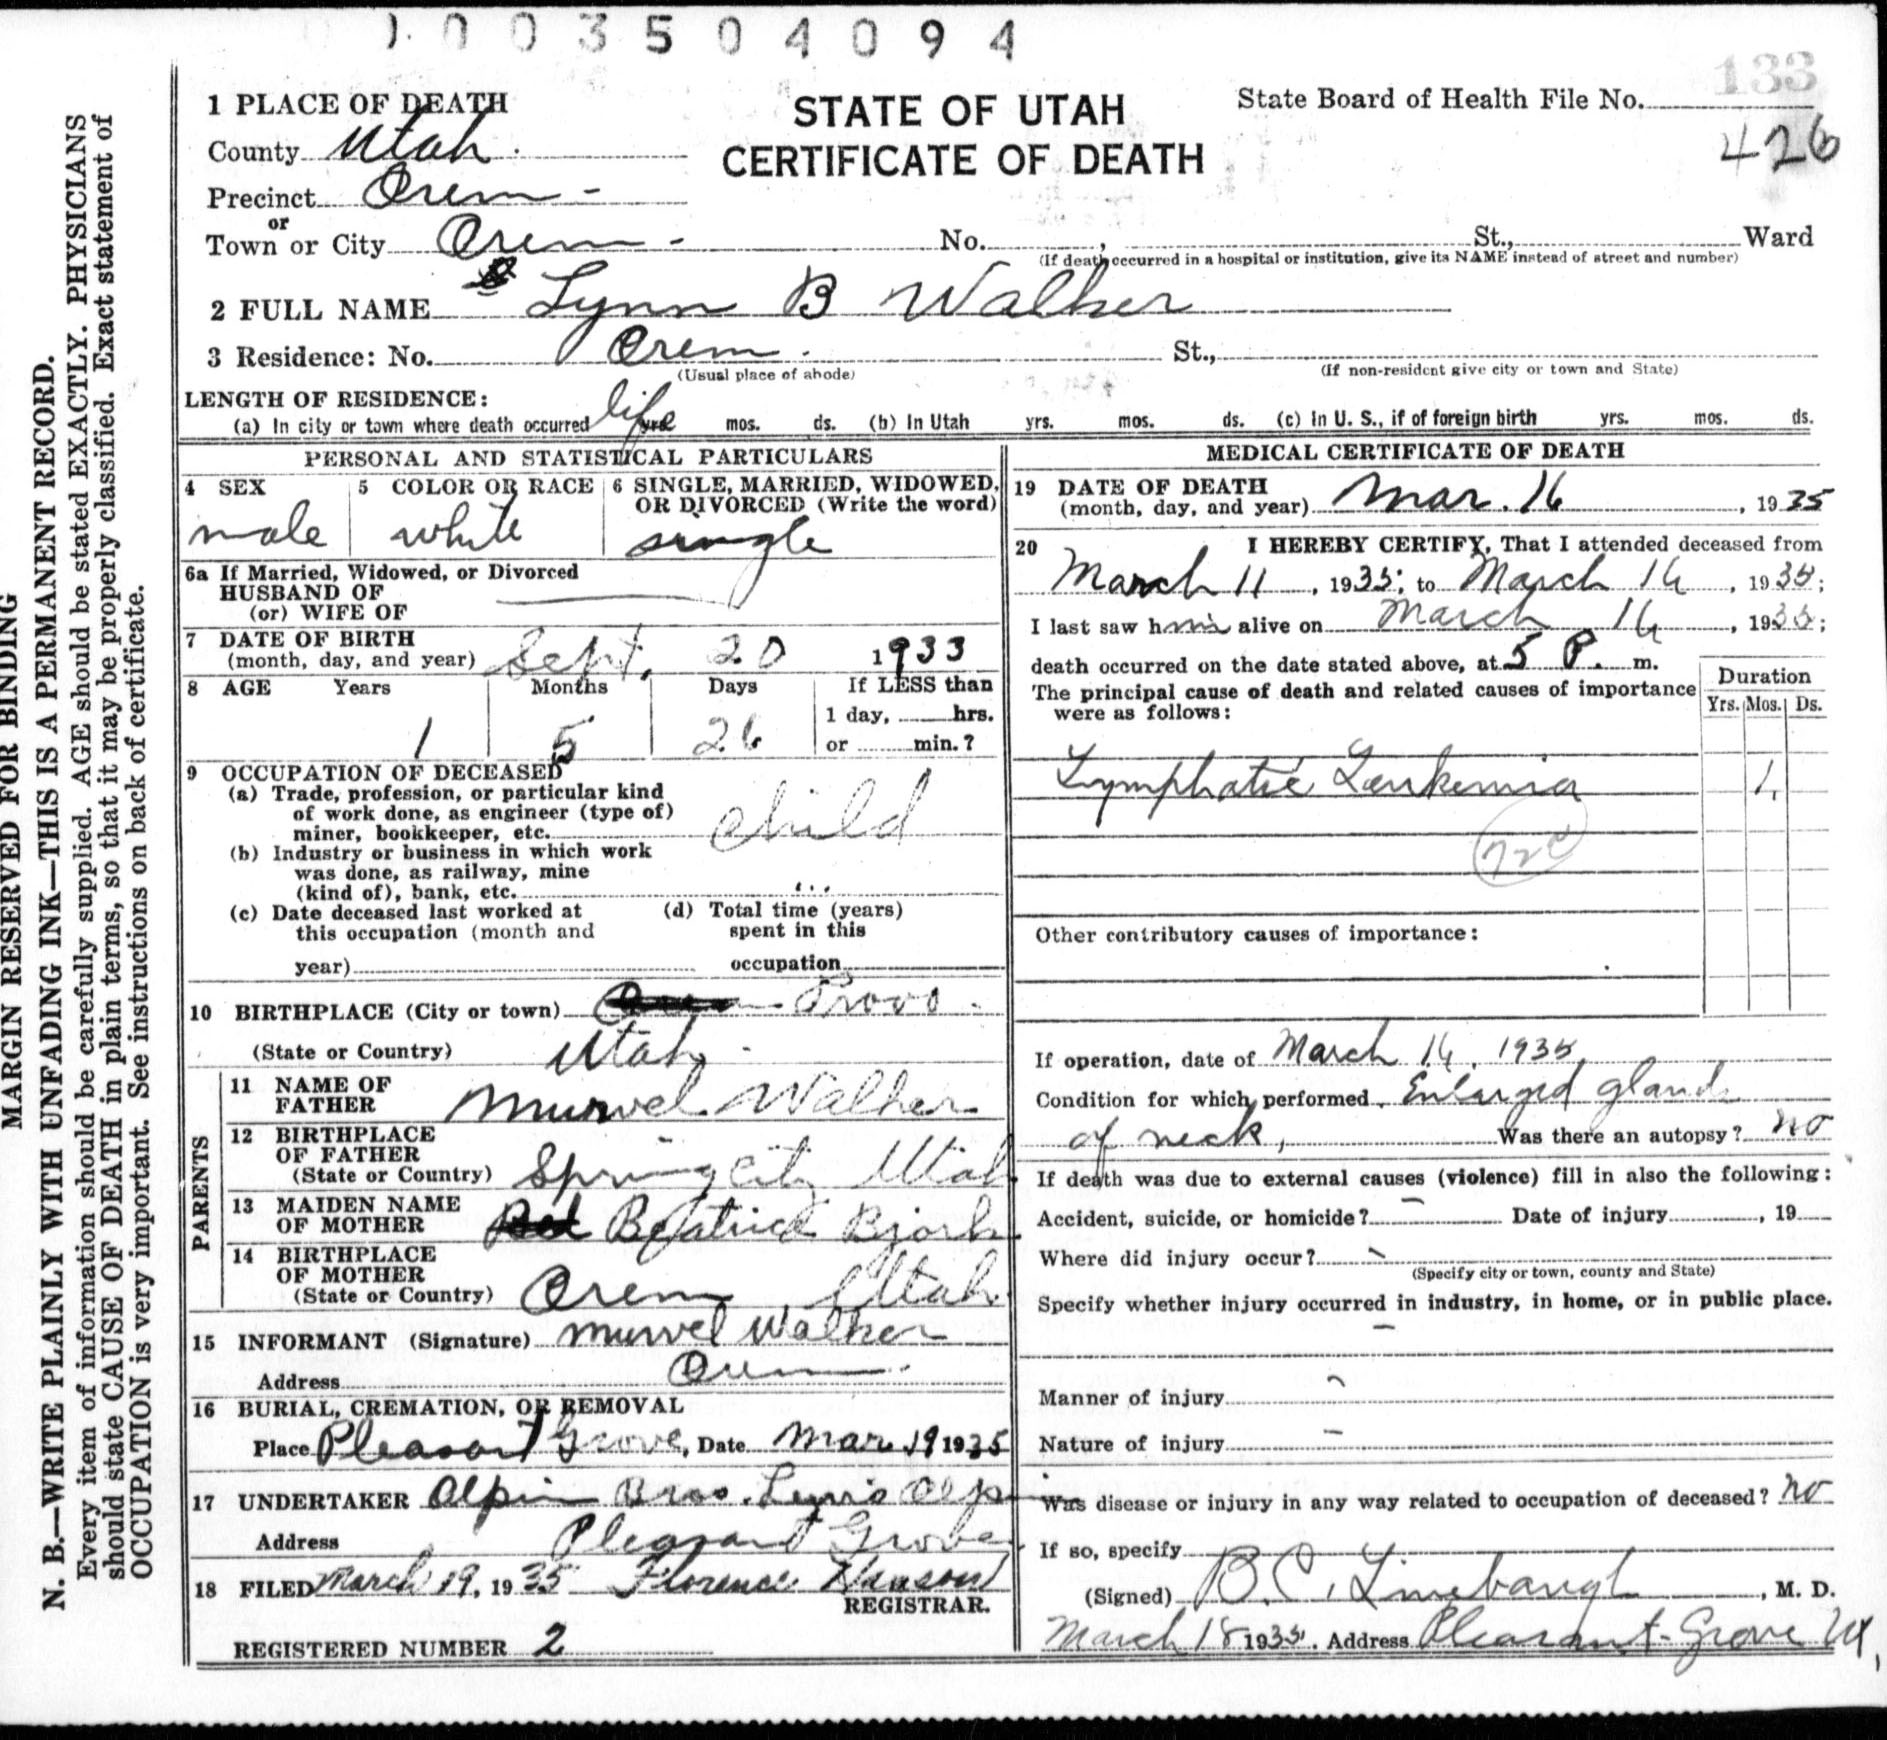 0 0 3 5 0 4 0 9 4
133
1 PLACE OF DEATH
STATE OF UTAH
CERTIFICATE OF DEATH
State Board of Health File No.
426
County Utah
Precinct Orem -
or
Town or City Orem - No. , St., Ward
(If death occurred in a hospital or institution, give its NAME instead of street and number)
2 FULL NAME Lynn B Walker
3 Residence: No. Orem. St.,
(Usual place of abode) (If non-resident give city or town and State)
LENGTH OF RESIDENCE:
(a) In city or town where death occurred life yrs. mos. ds. (b) In Utah yrs. mos. ds. (c) In U. S., if of foreign birth yrs. mos. ds.
PERSONAL AND STATISTICAL PARTICULARS
4 SEX
male
5 COLOR OR RACE
white
6 SINGLE, MARRIED, WIDOWED,
OR DIVORCED (Write the word)
single
6a If Married, Widowed, or Divorced
HUSBAND OF
(or) WIFE OF
7 DATE OF BIRTH
(month, day, and year) Sept. 20 1933
8 AGE Years Months Days If LESS than
1 day, hrs.
1 5 26 or min.?
9 OCCUPATION OF DECEASED
(a) Trade, profession, or particular kind
of work done, as engineer (type of)
miner, bookkeeper, etc. child
(b) Industry or business in which work
was done, as railway, mine
(kind of), bank, etc.
(c) Date deceased last worked at
this occupation (month and
year)
(d) Total time (years)
spent in this
occupation
10 BIRTHPLACE (City or town) Provo.
(State or Country) Utah -
PARENTS
11 NAME OF
FATHER Murvel Walker
12 BIRTHPLACE
OF FATHER
(State or Country) Spring City Utah
13 MAIDEN NAME
OF MOTHER Beatrice Bjork
14 BIRTHPLACE
OF MOTHER
(State or Country) Orem Utah
15 INFORMANT (Signature) Murvel Walker
Address Orem
16 BURIAL, CREMATION, OR REMOVAL
Place Pleasant Grove, Date Mar 19 1935
17 UNDERTAKER Alpin Bros. Lewis Alp
Address Pleasant Grove
18 FILED March 19, 1935 Florence Hanson
REGISTRAR.
REGISTERED NUMBER 2
MEDICAL CERTIFICATE OF DEATH
19 DATE OF DEATH
(month, day, and year) Mar. 16, 1935
20 I HEREBY CERTIFY, That I attended deceased from
March 11, 1935; to March 16, 1935;
I last saw him alive on March 16, 1935;
death occurred on the date stated above, at 5 P. m.
The principal cause of death and related causes of importance
were as follows:
Duration
Yrs. Mos. Ds.
Lymphatic Leukemia 1
72
Other contributory causes of importance:
If operation, date of March 16, 1935
Condition for which performed Enlarged glands
of neck, Was there an autopsy? no
If death was due to external causes (violence) fill in also the following:
Accident, suicide, or homicide? - Date of injury , 19
Where did injury occur? -
(Specify city or town, county and State)
Specify whether injury occurred in industry, in home, or in public place.
-
Manner of injury -
Nature of injury -
Was disease or injury in any way related to occupation of deceased? no
If so, specify
(Signed) B. C. Linebaugh, M. D.
March 18 1935. Address Pleasant Grove Ut,
MARGIN RESERVED FOR BINDING
N. B.—WRITE PLAINLY WITH UNFADING INK—THIS IS A PERMANENT RECORD.
Every item of information should be carefully supplied. AGE should be stated EXACTLY. PHYSICIANS
should state CAUSE OF DEATH in plain terms, so that it may be properly classified. Exact statement of
OCCUPATION is very important. See instructions on back of certificate.